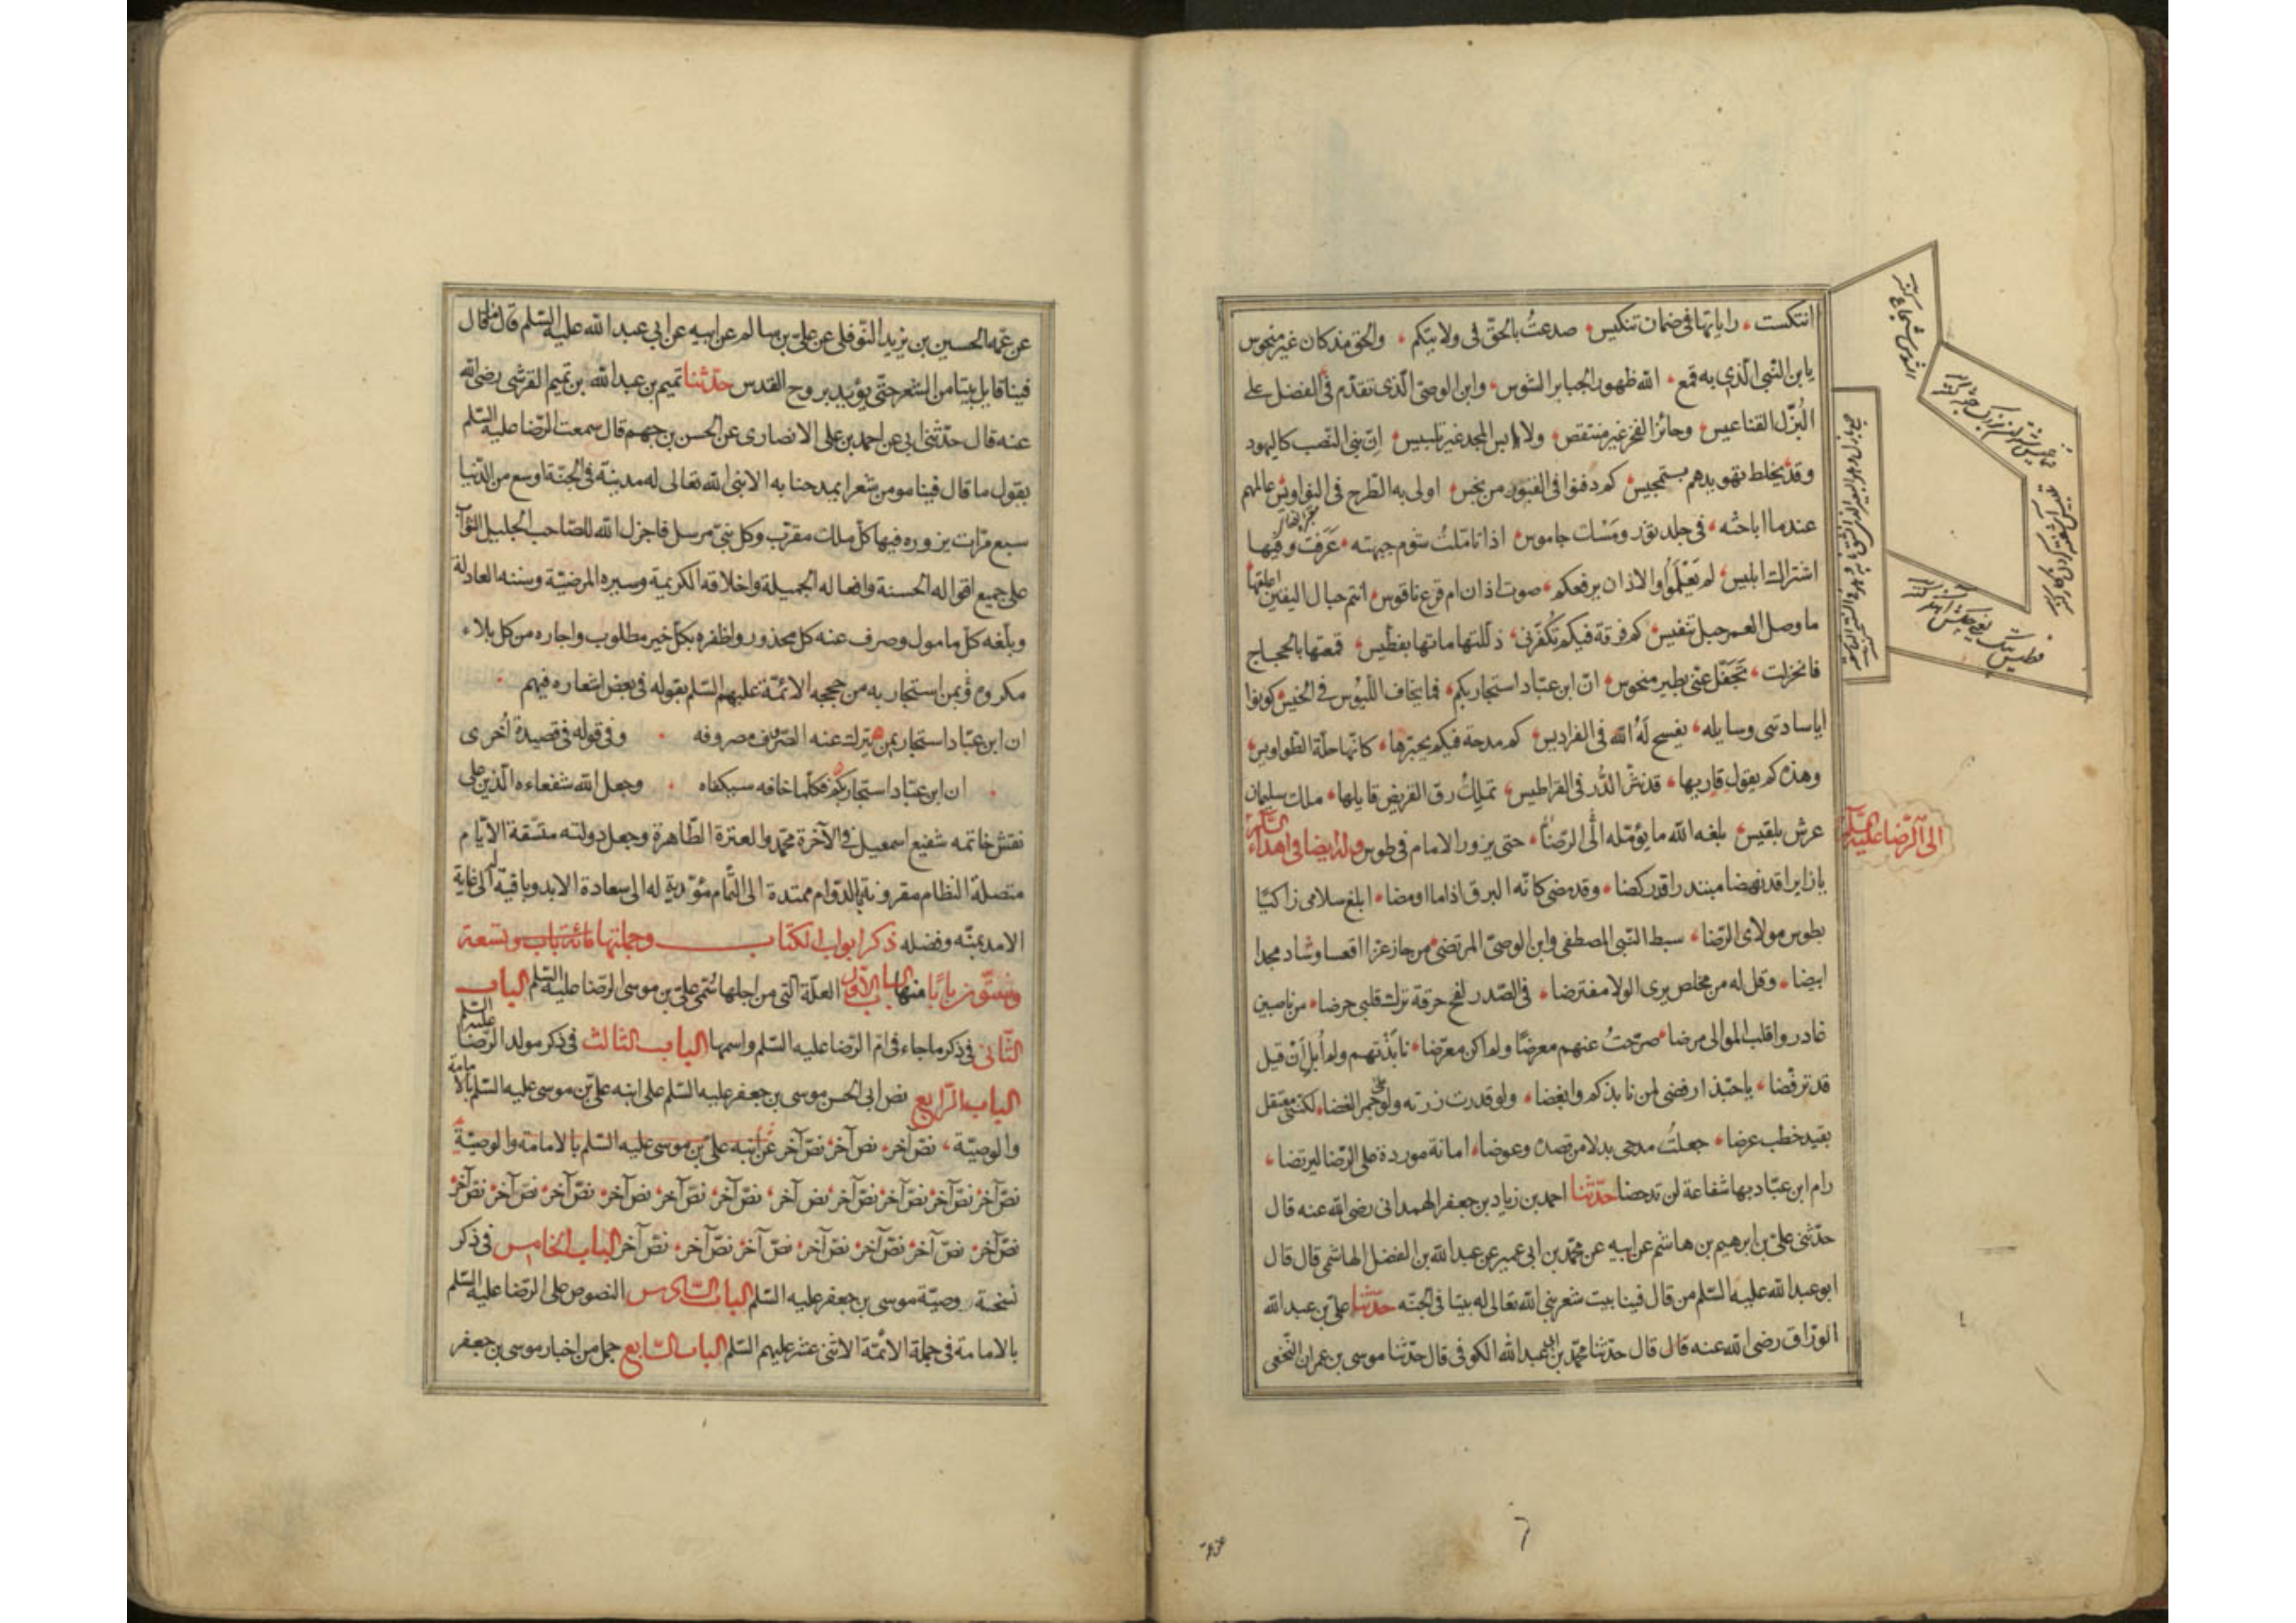 انتكست، راياتها في ضمان تنكيس، صدعتُ بالحقّ في ولايتكم، والحق مذ كان غير منحوس
يا بن النّبي الّذي به قمع، الله ظهور الجبابر الشوس، وابن الوصيّ الّذي تقدّم في الفضل على
البُزّل القناعيس، وحائز الفخر غير منتقص، ولابس المجد غير تلبيس، إنّ بني النّصب كاليهود
وقد يخلط تهويدهم بتمجيس، كم دفنوا في القبور من نجس، اولى به الطّرح في النواويس، عالمهم
عندما اباحثه، في جلد ثور ومَسْك جاموس، اذا تأمّلتُ شوم جبهته، عَرَفت فيها
اشتراك ابليس، لم يَعْلَموا والاذان يرفعكم، صوت اذان ام قرع ناقوس، انتم حبال اليقين اعلقها
ما وصل العمر حبل تنفيس، كم فرقة فيكم تُكفّرني، ذلّلتها ماتها بفطّيس، قمعتها بالحجاج
فانخزلت، تَجفّل عنّي بطير منحوس، انّ ابن عبّاد استجار بكم، فما يخاف اللّيوث في الخيس، كونوا
ايا سادتي وسايله، يفسح لَهُ الله في الفراديس، كم مدحة فيكم يحبّرها، كانّها حلّة الطّواويس،
وهذه كم يقول قاريها، قد نثر الدُّر في القراطيس، تملِكُ رقّ القريض قايلها، ملك سليمان
عرش بلقيس، بلغه الله ما يؤمّله الى الرّضا، حتى يزور الامام في طوس وله ايضا في اهداء السّلام
الى الرّضا عليه السّلم
يا زايرا قد نهضا مبتدرا قد ركضا، وقد مضى كانّه البرق اذا ما اومضا، ابلغ سلامي زاكيًا
بطوس مولاى الرّضا، سبط النّبي المصطفى وابن الوصيّ المرتضى، من حاز عزّا اقعسا وشاد مجدا
ابيضا، وقل له من مخلص يرى الولا مفترضا، في الصّدر لفح حرقة تترك قلبي حرضا، من ناصبين
غادروا قلب الموالي مرضا، صرّحتُ عنهم معرضًا ولم اكن معرّضا، نابَذْتهم ولم اُبل اَنْ قيل
قد ترفّضا، يا حبّذا رفضى لمن نابذكم وابغضا، ولو قدرت زرته ولو على جمر الغضا، لكنّني معتقل
بقيد خطب عرضا، جعلتُ مدحي بدلا من قصده وعوضا، امانة موردة على الرّضا ليرتضا،
رام ابن عبّاد بها شفاعة لن تدحضا حدّثنا احمد بن زياد بن جعفر الهمداني رضى الله عنه قال
حدّثني علىّ بن ابرهيم بن هاشم عن ابيه عن محمّد بن ابي عمير عن عبد الله بن الفضل الهاشمي قال قال
ابو عبد الله عليه السّلم من قال فينا بيت شعر بنى الله تعالى له بيتا في الجنّه حدّثنا علىّ بن عبد الله
الورّاق رضى الله عنه قال قال حدّثنا محمّد بن ابى عبد الله الكوفي قال حدّثنا موسى بن عمران النّخعى
عن عمّه
عن عمّه الحسين بن يزيد النّوفلي عن علىّ بن سالم عن ابيه عن ابي عبد الله عليه السّلم قال ما قال
فينا قايل بيتا من الشعر حتّى يؤيّد بروح القدس حدّثنا تميم بن عبد الله بن تميم القرشى رضى الله
عنه قال حدّثني ابي عن احمد بن على الانصارى عن الحسن بن جهم قال سمعت الرّضا عليه السّلم
يقول ما قال فينا مومن شعرا يمدحنا به الا بنى الله تعالى له مدينة في الجنّة اوسع من الدّنيا
سبع مرّات يزوره فيها كلّ ملك مقرّب وكل نبىّ مرسل فاجزل الله للصّاحب الجليل الثواب
على جميع اقواله الحسنة وافعاله الجميلة واخلاقه الكريمة وسيره المرضيّة وسننه العادلة
وبلّغه كلّ مامول وصرف عنه كل محذور واظفره بكلّ خير مطلوب واجاره من كل بلاء
ومكروه بمن استجار به من حججه الائمّة عليهم السّلم بقوله في بعض اشعاره فيهم
ان ابن عبّاد استجار بمن يترك عنه الصّروف مصروفه وفي قوله في قصيدة اُخرى
ان ابن عبّاد استجار بكم فكلّما خافه سيكفاه وجعل الله شفعاءه الّذين على
نقش خاتمه شفيع اسمعيل في الآخرة محمّد والعترة الطّاهرة وجعل دولته متّسقة الايّام
متصلة النظام مقرونة بالدّوام ممتدة الى التّمام مؤدية له الى سعادة الابد وباقية له الى غاية
الامد بمنّه وفضله ذكر ابواب الكتاب وجملتها مائة باب وتسعة
وستّون بابًا منها الباب الأول العلّة التي من اجلها سُمّى علىّ بن موسى الرّضا عليه السّلم الباب
الثّانى في ذكر ما جاء في امّ الرّضا عليه السّلم واسمها الباب الثّالث في ذكر مولد الرّضا عليه السّلم
الباب الرّابع نص ابي الحسن موسى بن جعفر عليه السّلم على ابنه علىّ بن موسى عليه السّلم بالامامة
والوصيّة، نصّ آخر، نص آخر، نصّ آخر عن ابنه علىّ بن موسى عليه السّلم بالامامة والوصيّة
نصّ آخر، نصّ آخر، نصّ آخر، نصّ آخر، نص آخر، نصّ آخر، نصّ آخر، نص آخر، نصّ آخر، نصّ آخر، نصّ آخر
نصّ آخر، نصّ آخر، نصّ آخر، نصّ آخر، نصّ آخر، نصّ آخر، نصّ آخر الباب الخامس في ذكر
نسخة وصيّة موسى بن جعفر عليه السّلم الباب السّادس النصوص على الرّضا عليه السّلم
بالامامة في جملة الائمّة الاثنى عشر عليهم السّلم الباب السّابع جمل من اخبار موسى بن جعفر